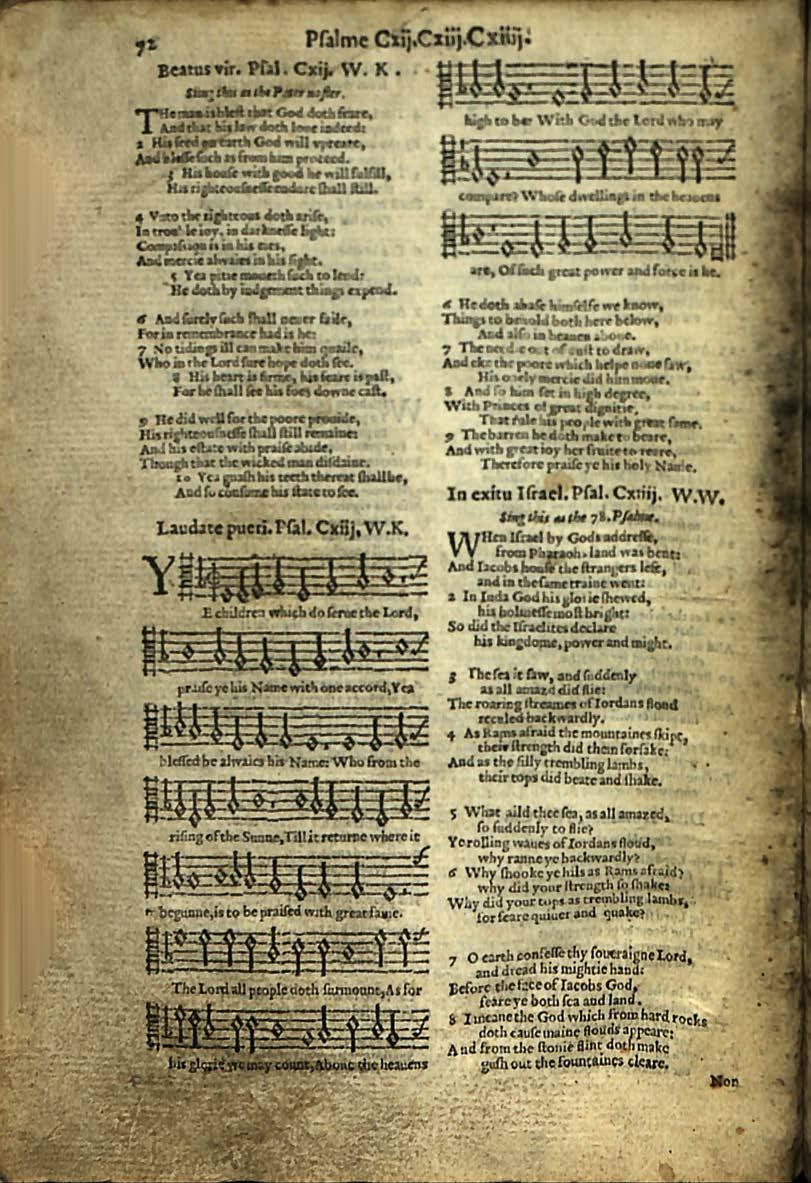 72
Pſalme Cxij.Cxiij.Cxiiij.
Beatus vir. Pſal. Cxij. W. K.
Sing this as the Pater noſter.
THe man is bleſt that God doth feare,
And that his law doth loue indeed:
2 His ſeed on earth God will vpreare,
And bleſſe ſuch as from him proceed.
3 His houſe with good he will fulfill,
His righteouſneſſe endure ſhall ſtill.
4 Vnto the righteous doth ariſe,
In trouble ioy, in darkneſſe light:
Compaſſion is in his eies,
And mercie alwaies in his ſight.
5 Yea pitie moueth ſuch to lend:
He doth by iudgement things expend.
6 And ſurely ſuch ſhall neuer faile,
For in remembrance had is he:
7 No tidings ill can make him quaile,
Who in the Lord ſure hope doth ſee.
8 His heart is firme, his feare is paſt,
For he ſhall ſee his foes downe caſt.
9 He did well for the poore prouide,
His righteouſneſſe ſhall ſtill remaine:
And his eſtate with praiſe abide,
Though that the wicked man diſdaine.
10 Yea gnaſh his teeth thereat ſhall he,
And ſo conſume his ſtate to ſee.
Laudate pueri. Pſal. Cxiij. W.K.
YE children which do ſerue the Lord,
praiſe ye his Name with one accord, Yea
bleſſed be alwaies his Name: Who from the
riſing of the Sunne, Till it returne where it
begunne, is to be praiſed with great fame.
The Lord all people doth ſurmount, As for
his glorie we may count, Aboue the heauens
high to be: With God the Lord who may
compare? Whoſe dwellings in the heauens
are, Of ſuch great power and force is he.
6 He doth abaſe himſelfe we know,
Things to behold both here below,
And alſo in heauen aboue.
7 The needie out of duſt to draw,
And eke the poore which helpe none ſaw,
His onely mercie did him moue.
8 And ſo him ſet in high degree,
With Princes of great dignitie,
That rule his people with great fame.
9 The barren he doth make to beare,
And with great ioy her fruite to reare,
Therefore praiſe ye his holy Name.
In exitu Iſrael. Pſal. Cxiiij. W.W.
Sing this as the 78. Pſalme.
WHen Iſrael by Gods addreſſe,
from Pharaohs land was bent:
And Iacobs houſe the ſtrangers left,
and in the ſame traine went:
2 In Iuda God his glorie ſhewed,
his holineſſe moſt bright:
So did the Iſraelites declare
his kingdome, power and might.
3 The ſea it ſaw, and ſuddenly
as all amazd did flie:
The roaring ſtreames of Iordans floud
recoiled backwardly.
4 As Rams afraid the mountaines ſkipt,
their ſtrength did them forſake:
And as the ſilly trembling lambs,
their tops did beate and ſhake.
5 What aild thee ſea, as all amazed,
ſo ſuddenly to flie?
Ye rolling waues of Iordans floud,
why ranne ye backwardly?
6 Why ſhooke ye hils as Rams afraid?
why did your ſtrength ſo ſhake?
Why did your tops as trembling lambs,
for feare quiuer and quake?
7 O earth confeſſe thy ſoueraigne Lord,
and dread his mightie hand:
Before the face of Iacobs God,
feare ye both ſea and land.
8 I meane the God which from hard rocks
doth cauſe maine flouds appeare:
And from the ſtonie flint doth make
guſh out the fountaines cleare.
Non